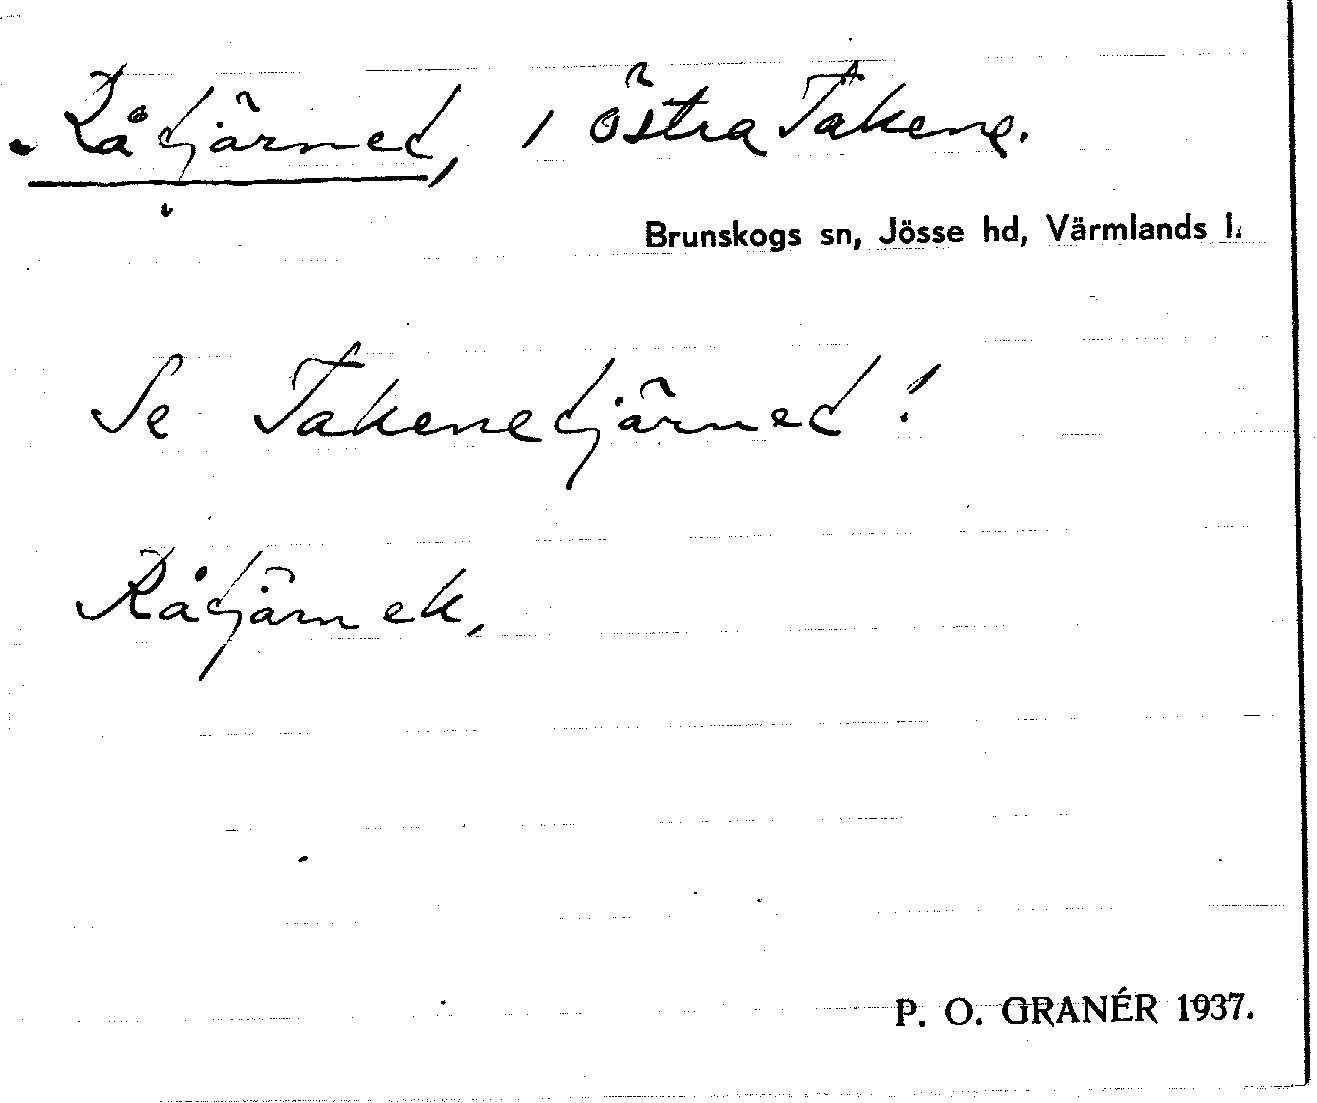 Råtjärnet, i östra Takene.
Brunskogs sn, Jösse hd, Värmlands l.
Se Takenetjärnet!
Råtjärnek,
P. O. GRANÉR 1937.